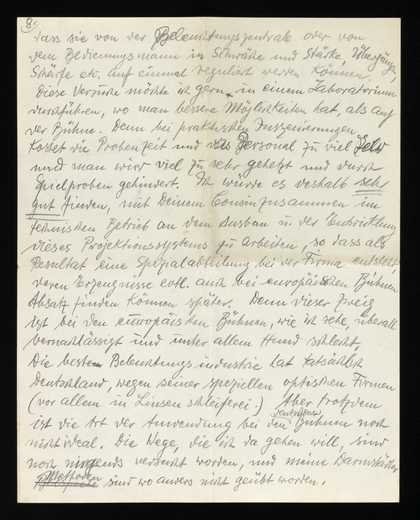 8.
dass sie von der Beleuchtungszentrale oder von
dem Bedienungsmann in Schwäche und Stärke, Übergänge,
Schärfe etc. auf einmal reguliert werden können.
Diese Versuche möchte ich gern in einem Laboratorium
durchführen, wo man bessere Möglichkeiten hat, als auf
der Bühne. Denn bei praktischen Inszenierungen
kostet die Probenzeit und das Personal zu viel Geld
und man wird viel zu sehr gehetzt und durch
Spielproben gehindert. Ich würde es deshalb sehr
gut finden, mit Deinem Cousin zusammen im
technischen Betrieb an dem Ausbau u. der Entwicklung
dieses Projektionssystems zu arbeiten, so dass als
Resultat eine Spezialabteilung bei der Firma entsteht,
deren Erzeugnisse evtl. auch bei europäischen Bühnen
Absatz finden können später. Denn dieser Zweig
ist bei den europäischen Bühnen, wie ich sehe, überall
vernachlässigt und unter allem Hund schlecht.
Die beste Beleuchtungsindustrie hat tatsächlich
Deutschland, wegen seiner speziellen optischen Firmen
(vor allem in Linsenschleiferei.) Aber trotzdem
ist die Art der Anwendung bei den Bühnen noch
nicht ideal. Die Wege, die ich da gehen will, sind
noch nirgends versucht worden, und meine Darmstädter
Methoden sind wo anders nicht geübt worden.